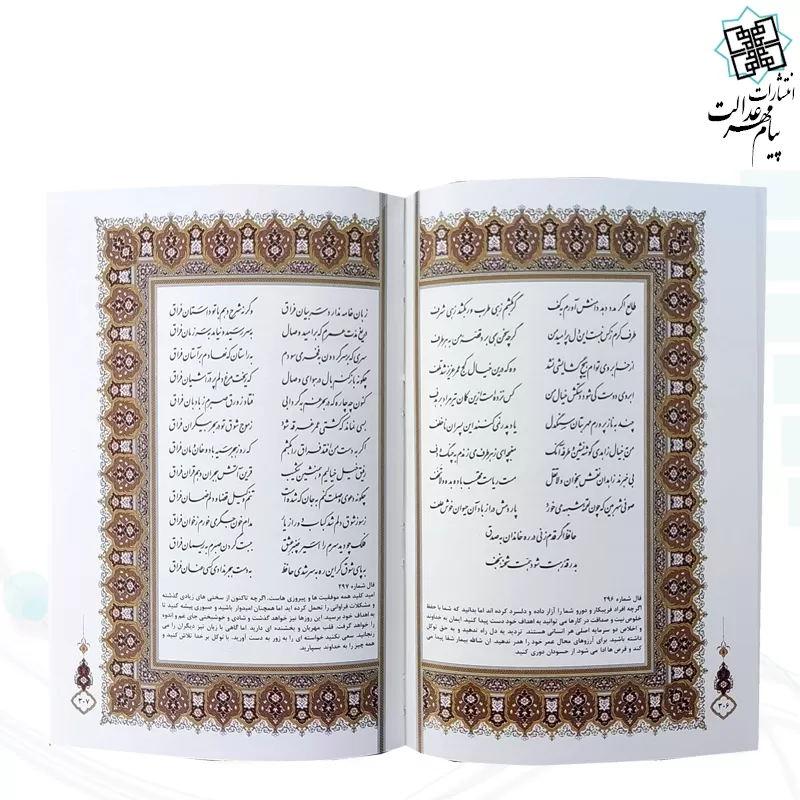 انتشارات
پیام مهر عدالت
طالع اگر مدد دهد دامنش آورم بکف
گر بکشم زهی طرب ور بکشد زهی شرف
طرف کرم ز کس نبست این دل پر امید من
گرچه سخن همی برد قصه من به هر طرف
از خم ابروی توام هیچ گشایشی نشد
وه که درین خیال کج عمر عزیز شد تلف
ابروی دوست کی شود دستکش خیال من
کس نزده‌ست ازین کمان تیر مراد بر هدف
چند به ناز پرورم مهر بتان سنگدل
یاد پدر نمی‌کنند این پسران ناخلف
من به خیال زاهدی گوشه‌نشین و طرفه آنک
مغبچه‌ای ز هر طرف می‌زندم به چنگ و دف
بی خبرند زاهدان نقش بخوان و لاتقل
مست ریاست محتسب باده بده و لاتخف
صوفی شهر بین که چون لقمه شبهه می‌خورد
پاردمش دراز باد آن حیوان خوش علف
حافظ اگر قدم زنی در ره خاندان به صدق
بدرقه رهت شود همت شحنه نجف
فال شماره ۲۹۶
اگرچه افراد فریبکار و دورو شما را آزار داده و دلسرد کرده اند اما بدانید که شما با حفظ
خلوص نیت و صداقت در کارها می توانید به اهداف خود دست پیدا کنید. ایمان به خداوند
و اخلاص دو سرمایه اصلی هر انسانی هستند. تردید به دل راه ندهید و به حق توکل
داشته باشید. برای آرزوهای محال عمر خود را هدر ندهید. ان شالله بیمار شفا پیدا می
کند و قرض ها ادا می شود. از حسودان دوری کنید.
۳۰۶
زبان خامه ندارد سر بیان فراق
وگرنه شرح دهم با تو داستان فراق
دریغ مدت عمرم که بر امید وصال
بسر رسید و نیامد بسر زمان فراق
سری که بر سر گردون به فخر می‌سودم
به راستان که نهادم بر آستان فراق
چگونه باز کنم بال در هوای وصال
که بریخت مرغ دلم پر در آشیان فراق
کنون چه چاره که در بحر غم به گردابی
فتاد زورق صبرم ز بادبان فراق
بسی نماند که کشتی عمر غرقه شود
ز موج شوق تو در بحر بیکران فراق
اگر به دست من افتد فراق را بکشم
که روز هجر سیه باد و خان و مان فراق
رفیق خیل خیالیم و همنشین شکیب
قرین آتش هجران و هم قران فراق
چگونه دعوی وصلت کنم به جان که شده‌است
تنم وکیل قضا و دلم ضمان فراق
ز سوز شوق دلم شد کباب دور از یار
مدام خون جگر می‌خورم ز خوان فراق
فلک چو دید سرم را اسیر چنبر عشق
ببست گردن صبرم به ریسمان فراق
به پای شوق گر این ره به سر شدی حافظ
به دست هجر ندادی کسی عنان فراق
فال شماره ۲۹۷
امید کلید همه موفقیت ها و پیروزی هاست. اگرچه تاکنون از سختی های زیادی گذشته
و مشکلات فراوانی را تحمل کرده اید اما همچنان امیدوار باشید و صبوری پیشه کنید تا
به اهداف خود برسید. این روزها نیز خواهد گذشت و شادی و خوشبختی جای غم و اندوه
را خواهد گرفت. قلب مهربان و بخشنده ای دارید. اما گاهی با زبان نیز دیگران را می
رنجانید. سعی نکنید خواسته ای را به زور به دست آورید. با توکل بر خدا تلاش کنید و
همه چیز را به خداوند بسپارید.
۳۰۷